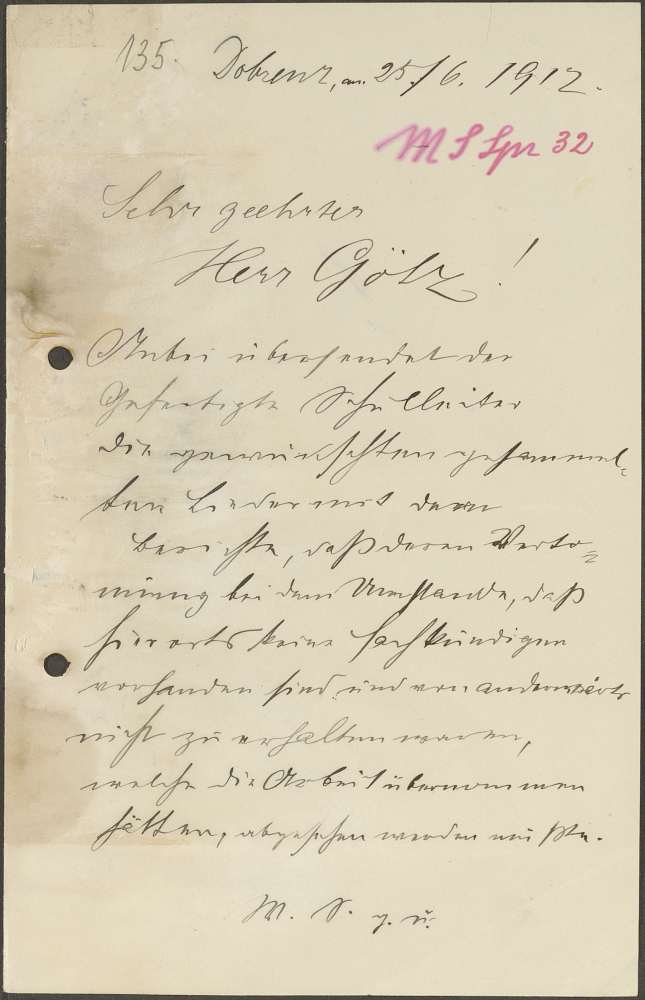 135.
Dobrenz, am 25./6. 1912.
M S Spr 32
Sehr geehrter
Herr Götz!
Anbei übersendet der
Gefertigte Schulleiter
die gewünschten gesammel-
ten Lieder mit dem
Berichte, daß deren Verto-
nung bei dem Umstande, daß
hierorts keine Sachkundigen
vorhanden sind und von anderwärts
nicht zu erhalten waren,
welche die Arbeit übernommen
hätten, abgesehen werden mußte.
M. S. g. ü.